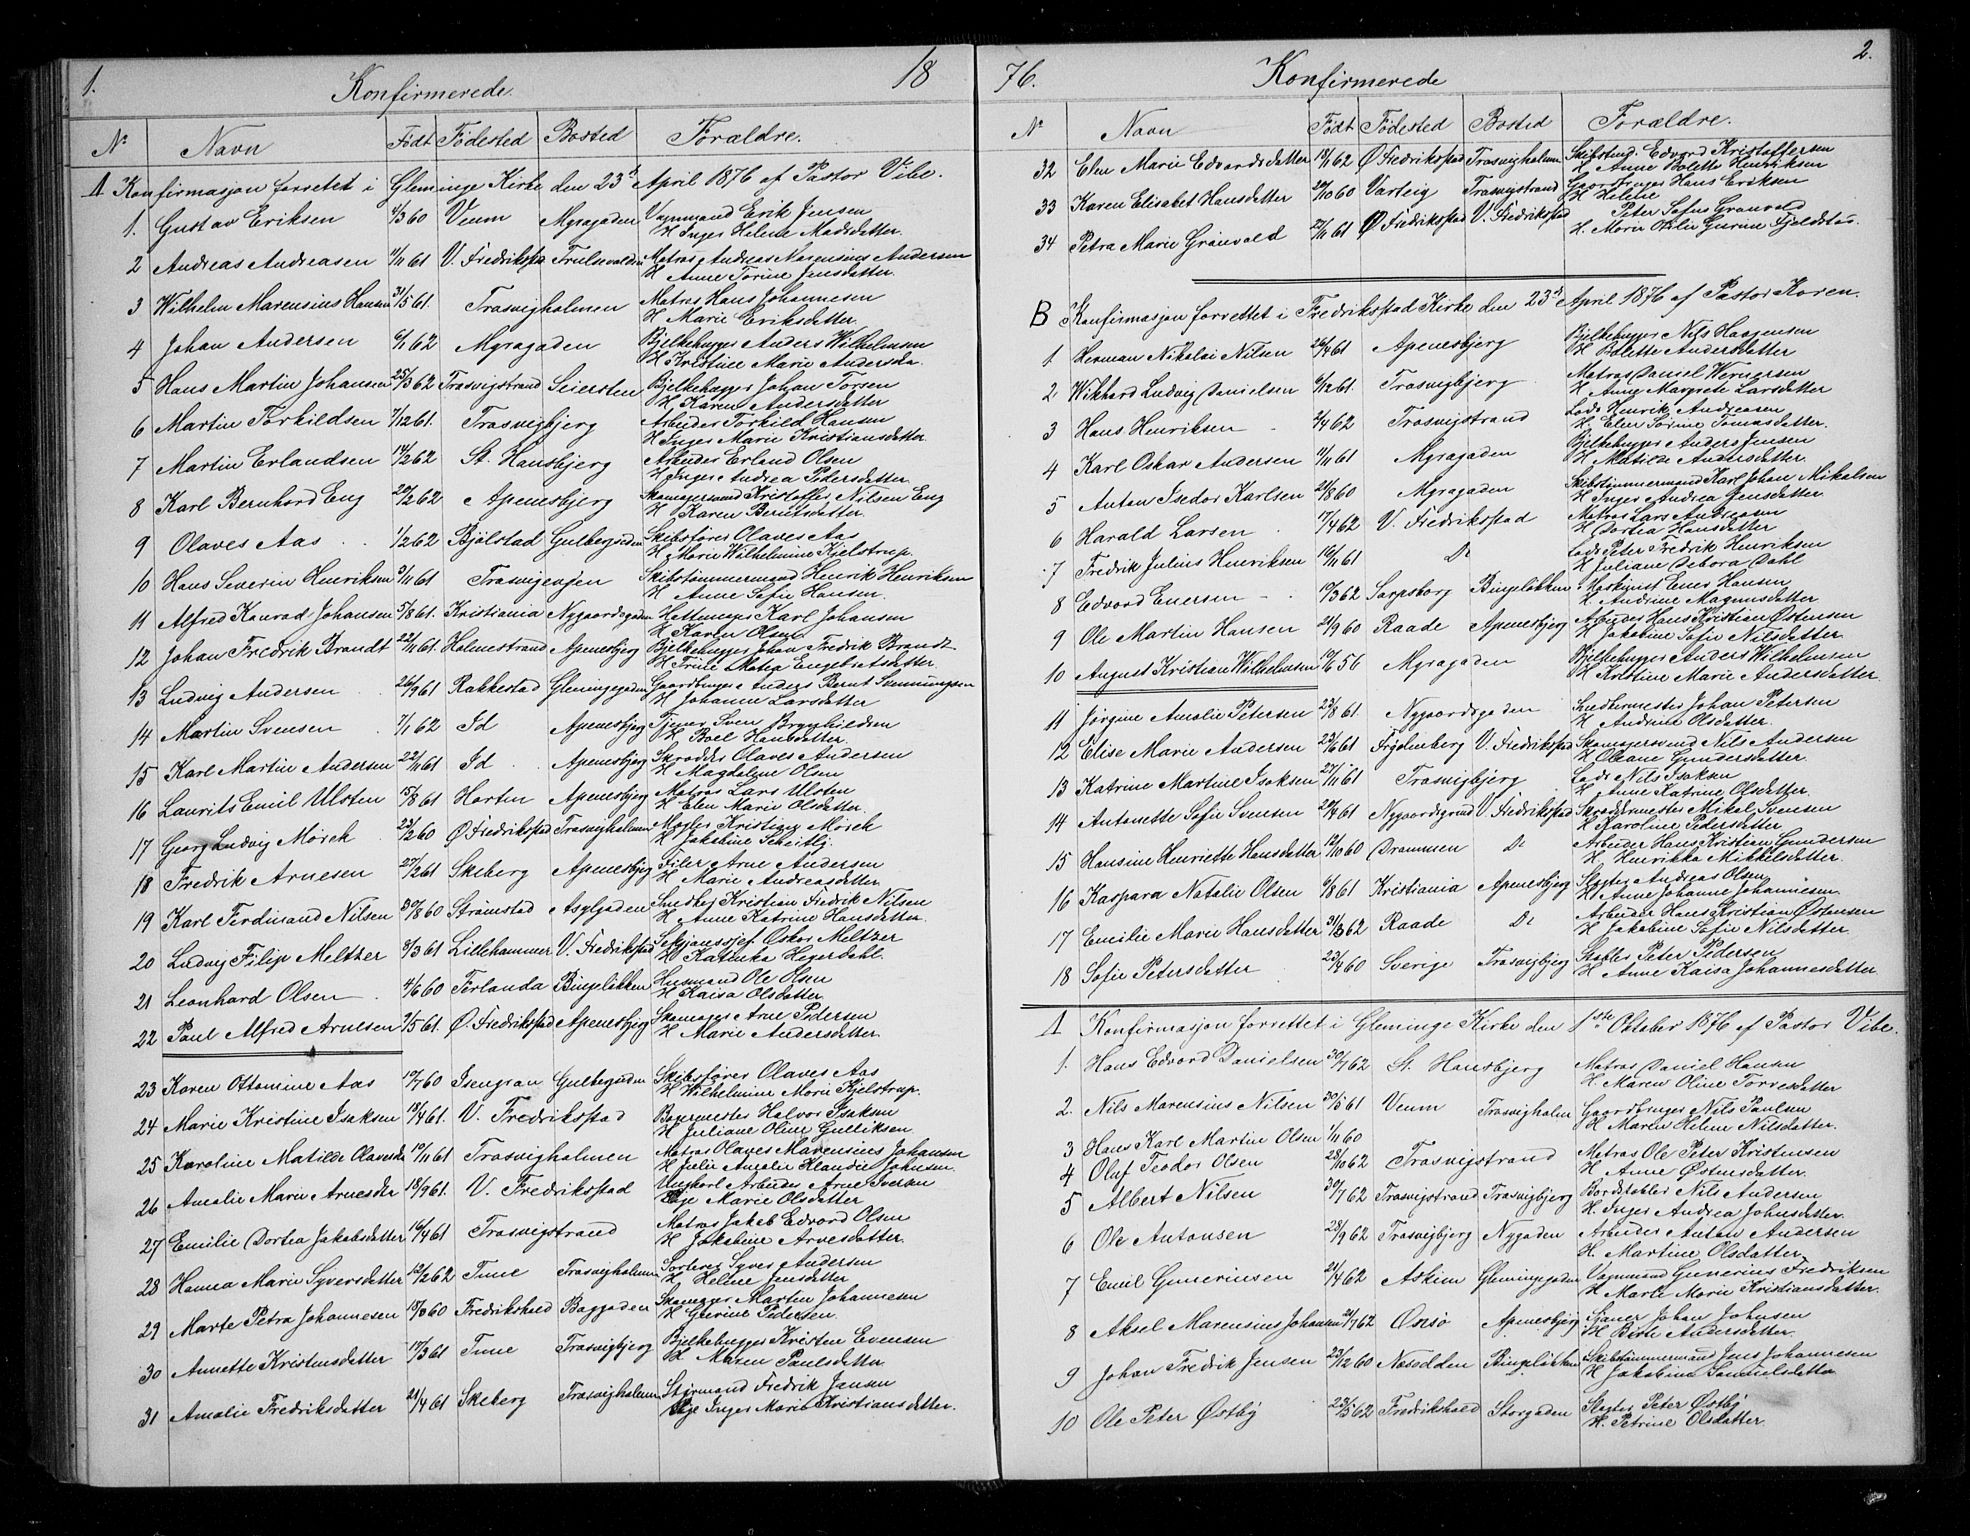 1. Konfirmerede. 18
Nr Navn Født Fødested Bosted Forældre.
A Konfirmasjon forrettet i Gleminge Kirke den 23de April 1876 af Pastor Vibe.
1. Gustav Eriksen 4/3 60 Veum Myragaden Vognmand Erik Jensen
H. Inger Helene Madsdatter.
2 Andreas Andreasen 4/11 61 V. Fredriksstad Matros Andreas Andersen
H Anne Torine Jensdatter.
3 Wilhelm Marensius Hansen 31/5 61. Trosvigholmen Matros Hans Johannesen
H Marie Eriksdatter.
4 Johan Andersen 6/1 62 Myragaden Bjelkehugger Anders Wilhelmsen
H Kristine Marie Andersda.
5 Hans Martin Johansen 25/3 62 Trosvigstrand Seiersten Bjelkehugger Johan Torsen
H. Karen Andersdatter
6 Martin Torkildsen 7/12 61. Trosvigbjerg Arbeider Torkild Hansen
H Inger Marie Kristiansdatter.
7 Martin Erlandsen 14/2 62 St. Hansbjerg Arbeider Erland Olsen
H Inger Andrea Pedersdatter.
8 Karl Bernhard Eng 20/2 62 Apenesbjerg Skomagersvend Kristoffer Nilsen Eng
H. Karen Berntsdatter.
9 Olaves Aas 1/2 62 Bjölstad Gulbergsiden Skibsfører Olaves Aas
H. Marie Wilhelmine Kjelstrup.
10 Hans Severin Henriksen 3/11 61 Skibstømmermand Henrik Henriksen
H. Anne Sofie Hansen.
11 Alfred Konrad Johansen 5/8 61. Kristiania Nygaardsgaden Hattemager Karl Johansen
H. Karen Olsen
12 Johan Fredrik Brandt 22/11 61. Holmestrand Apenesbjerg Bjelkehugger Johan Fredrik Brandt
H Trine Matea Engebretsdatter.
13 Ludvig Andersen 26/9 61 Rakkestad Glemingegaden Gaardbruger Anders Bernt
H Johanne Larsdatter
14 Martin Svensen 7/1 62 Id Apenesbjerg Tjener Sven Brynhildsen
H Boel Hansdatter.
15 Karl Martin Andersen 22/11 61 Id Apenesbjerg Skrædder Olaves Andersen
H Magdalene Olsen
16 Laurits Emil Ulsten 15/8 61 Horten Apenesbjerg Matros Lars Ulsten
H Elen Marie Olsdatter.
17 Georg Ludvig Mörch 23/2 60 Ø Fredriksstad Trosvigholmen Kristian Mörch
H Jakobine
18 Fredrik Arnesen 27/2 61 Skeberg Apenesbjerg Filer Arne Andersen
H Marie Andreasdatter
19 Karl Ferdinand Nilsen 30/8 60 Strömstad Asylgaden Smed Kristian Fredrik Nilsen
H Anne Katrine Hansdatter.
20 Ludvig Filip Meltzer 8/3 61 Lillehammer V. Fredriksstad Oskar Meltzer
H Katinka Hegerdahl.
21 Leonhard Olsen 4/6 60 Ferlanda Bingeløkken Husmand Ole Olsen
H Kaisa Olsdatter
22 Paul Alfred Arnesen 2/5 61. Ø. Fredriksstad Apenesbjerg Skomager Arne Pedersen
H Marie Andersdatter.
23 Karen Ottomine Aas 10/7 60 Gulbergsiden Skibsfører Olaves Aas
H Wilhelmine Marie Kjelstrup.
24 Marie Kristine Isaksen 19/4 61. V. Fredriksstad Halvor Isaksen
H Juliane Oline Gulliksen.
25 Karoline Matilde 10/11 61 Trosvigholmen Matros Olaves Marensius Johansen
H Julie Amalie Klaudie Johnsen.
26 Amalie Marie Arnesdtr 18/9 61. V. Fredriksstad Ungkarl Arbeider Arne Iversen
Pige Marie Olsdatter
27 Emilie Dortea Jakobsdatter 16/4 61 Trosvigstrand Matros Jakob Edvard Olsen
H Jakobine Arvesdatter.
28 Hanna Marie Syversdatter 12/2 62 Tune Trosvigholmen Syver Andersen
H. Helene Jensdatter
29 Marte Petra Johannesen Fredrikshald Baggaden Skomager Martin Johannesen
H Gurine Pedersen.
30 Annette Kristensdatter 17/3 61 Tune Trosvigbjerg Bjelkehugger Kristen Evensen
H Maren Paulsdatter
31 Amalie Fredriksdatter 21/4 61 Skeberg Trosvigholmen Styrmand Fredrik Jansen
Pige Inger Marie Kristiansdatter.
76. Konfirmerede 2.
Nr Navn Født Fødested Bosted Forældre.
32 Elen Marie Edvardsdatter 18/1 62 Ø Fredriksstad Trosvigholmen Edvard Kristoffersen
H Anne Bolette Henriksen
33 Karen Elisabet Hansdatter 20/10 60 Varteig Trosvigstrand Gaardbruger Hans Eriksen
H Helene
34 Petra Marie Grönvold 27/11 61 Ø. Fredriksstad V. Fredriksstad Peter Sofus Grönvold
H. Maren Otilie Gurine
B Konfirmasjon forrettet i Fredriksstad Kirke den 23de April 1876 af Pastor Koren.
1 Herman Nikolai Nilsen 26/4 61 Apenesbjerg Bjelkehugger Nils Haagensen
H Bolette Andersdatter
2 Wikhard Ludvig Danielsen 6/12 61. Trosvigbjerg Matros Daniel Wernersen
H Anne Margrete Larsdatter
3 Hans Henriksen 2/4 62 Trosvigstrand Lods Henrik Andreasen
H. Elen Sörine Tomasdatter.
4 Karl Oskar Andersen 11/11 61 Myragaden Bjelkehugger Anders Jensen
H Matilde Andersdatter.
5 Anton Isedor Karlsen 21/8 60 Myragaden Skibstømmermand Karl Johan Mikalsen
H Inger Andrea Jensdatter.
6 Harald Larsen 17/4 62 V. Fredriksstad Matros Lars Andreasen
H Dortea Hansdatter
7 Fredrik Julius Henriksen 10/11 61 Do Lods Peter Fredrik Henriksen
H Juliane Debora Dahl
8 Edvard Enersen 19/3 62 Sarpsborg Bingeløkken Maskinist Ener Hansen
H. Andrine Magnusdatter
9 Ole Martin Hansen 21/9 60 Raade Apenesbjerg Arbeider Hans Kristian Østensen
H Jakobine Sofie Nilsdatter.
10 August Kristian Wilhelmsen 10/6 56 Myragaden Bjelkehugger Anders Wilhelmsen
H Kristine Marie Andersdatter.
11 Jörgine Amalie Petersen 23/8 61. Nygaardsgaden Snedkermester Johan Petersen
H Andrine Olsdatter.
12 Elise Marie Andersen 23/6 61 V. Fredriksstad Skomagersvend Nils Andersen
H Oleane Gundersdatter.
13 Katrine Martine Isaksen 27/11 61 Trosvigbjerg Lods Nils Isaksen
H Anne Katrine Olsdatter.
14 Antonette Sofie Svensen 20/4 61 Nygaardsgrund V. Fredriksstad Skræddermester Mikal Svensen
H Karoline Pedersdatter.
15 Hansine Henriette Hansdatter 12/10 60 Drammen Do Arbeider Hans Kristian Gundersen
H. Henrikka Mikkelsdatter.
16 Kaspara Natalie Olsen 6/8 61 Kristiania Apenesbjerg Slagter Andreas Olsen
H Anne Johanne Johannesen.
17 Emilie Marie Hansdatter 31/3 62 Raade Do Arbeider Hans Kristian Østensen
H Jakobine Sofie Nilsdatter.
18 Sofie Petersdatter 23/4 60 Sverige Trosvigbjerg Stabler Peter Pedersen
H Anne Kaisa Johannesdatter.
A Konfirmasjon forrettet i Gleminge Kirke den 1ste Oktober 1876 af Pastor Vibe.
1. Hans Edvard Danielsen 30/1 62 St. Hansbjerg Matros Daniel Hansen
H. Maren Oline Torvesdatter
2. Nils Marensius Nilsen 30/5 61 Veum Trosvigholm Gaardbruger Nils Paulsen
H Maren Helene Nilsdatter.
3 Hans Karl Martin Olsen 1/11 60
4 Oluf Teodor Olsen 28/10 62 Trosvigstrand Matros Ole Peter Kristensen
H Anne Østensdatter.
5 Albert Nilsen 30/7 62 Trosvigstrand Trosvigbjerg Bordstabler Nils Andersen
H. Inger Andrea Johnsdatter.
6 Ole Antonsen 28/9 62 Trosvigbjerg Nygaden Arbeider Anton Andersen
H. Martine Olsdatter
7 Emil Gunerinsen 21/4 62 Askim Glemingegaden Vognmand Gunerius Fredriksen
H Marte Marie Kristiansdatter.
8 Aksel Marensius Johansen 21/7 62 Onsø Apenesbjerg Johan Johnsen
H Berte Andersdatter.
9 Johan Fredrik Jensen 23/12 60 Næsodden Bingeløkken Skibstømmermand Jens Johannesen
H Jakobine Samuelsdatter
10 Ole Peter Østby 23/5 62 Fredrikshald Storgaden Slagter Peter Østby
H. Petrine Olsdatter.